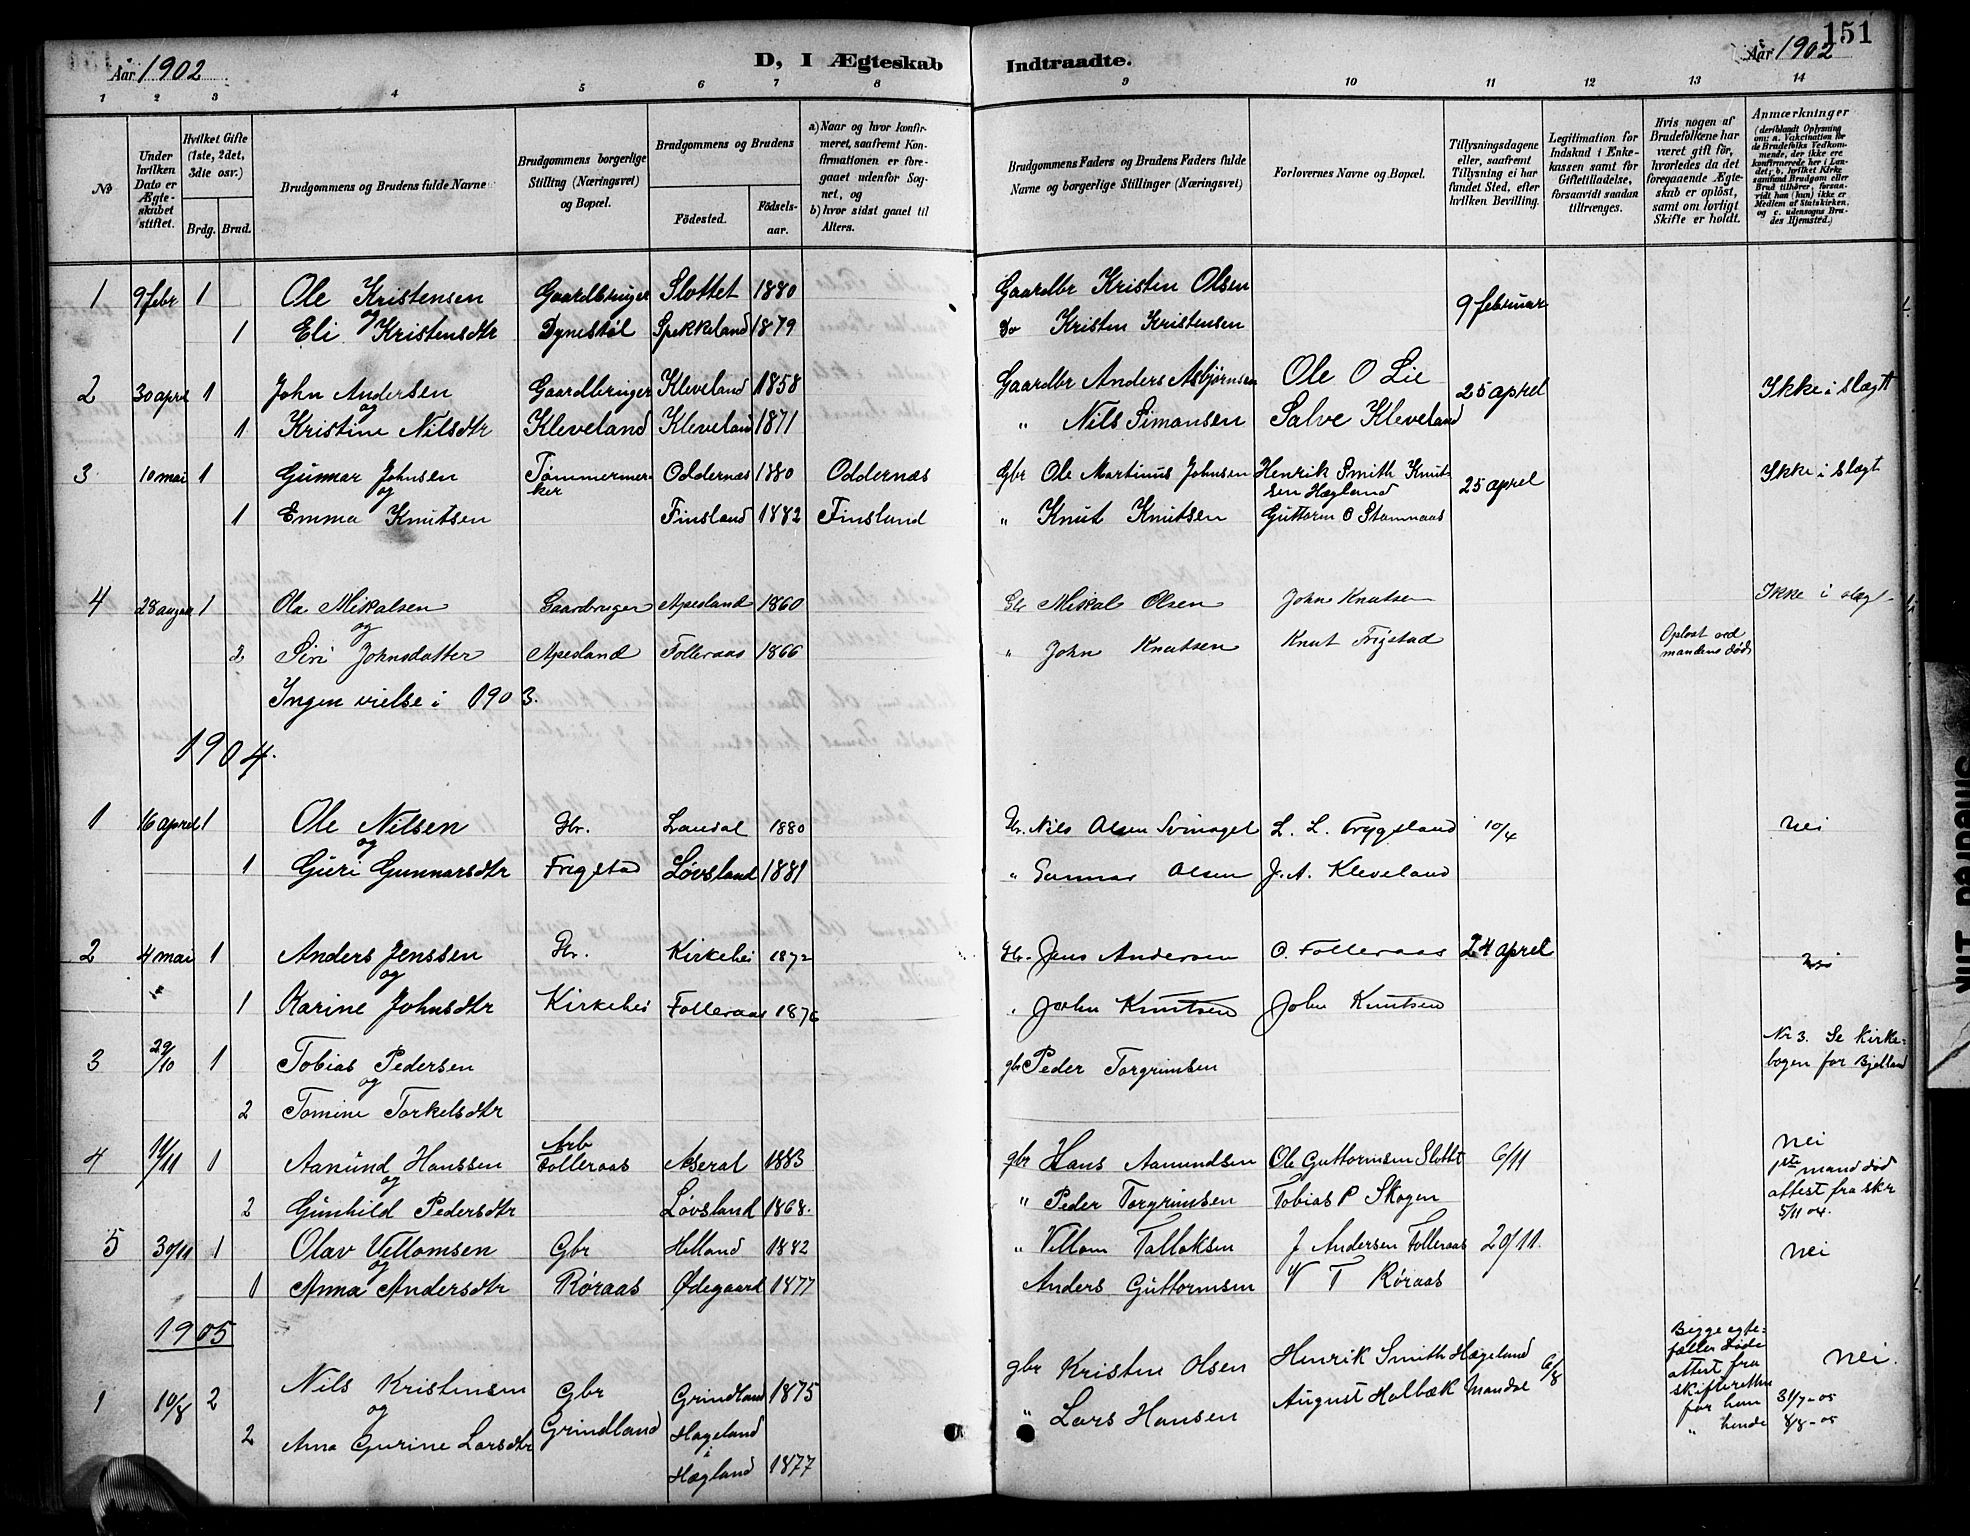 Aar 1902
D, I Ægteskab Indtraadte.
Aar 1902
151
1 2 3 4 5 6 7 8 9 10 11 12 13 14
No
Under hvilken Dato er Ægteskabet stiftet.
Hvilket Gifte (1ste, 2det, 3die osv.)
Brdg. Brud.
Brudgommens og Brudens fulde Navne
Brudgommens borgerlige Stilling (Næringsvei) og Bopæl.
Brudgommens og Brudens
Fødested.
Fødselsaar.
a) Naar og hvor konfirmeret, saafremt Konfirmationen er foregaaet udenfor Sognet, og
b) hvor sidst gaaet til Alters.
Brudgommens Faders og Brudens Faders fulde Navne og borgerlige Stillinger (Næringsvei)
Forlovernes Navne og Bopæl.
Tillysningsdagene eller, saafremt Tillysning ei har fundet Sted, efter hvilken Bevilling.
Legitimation for Indskud i Enkekassen samt for Giftetilladelse, forsaavidt saadan tiltrænges.
Hvis nogen af Brudefolkene har været gift før, hvorledes da det foregaaende Ægteskab er opløst, samt om lovligt Skifte er holdt.
Anmærkninger
(deriblandt Oplysning om: a. Vakcination for de Brudefolks Vedkommende, der ikke ere konfirmerede her i Landet; b. hvilket Kirkesamfund Brudgom eller Brud tilhører, forsavidt han (hun) ikke er Medlem af Statskirken, og c. udensogns Brudes Hjemsted.)
1 9 febr 1 Ole Kristensen Gaardbruger Slottet 1880 Gaardbr Kristen Olsen 9 februar
og
1 Eli Kristensdtr Dynestøl Spekkeland 1879 Do Kristen Kristensen
2 30 aprl 1 John Andersen Gaardbruger Kleveland 1858 Gaardbr Anders Asbjørnsen Ole O Lie 25 aprel Ikke i slægt
og
1 Kristine Nilsdtr Kleveland Kleveland 1871 " Nils Simonsen Salve Kleveland
3 10 mai 1 Gunnar Johnsen Tømmermerker Oddernæs 1880 Oddernæs Gbr Ole Martinus Johnsen Henrik Smith Knutsen Hægland 25 aprel Ikke i slægt
og
1 Emma Knutsen Finsland 1882 Finsland " Knut Knutsen Guttorm O Stamnaas
4 28 august 1 Ola Mikalsen Gaardbruger Apesland 1860 Gbr Mikal Olsen John Knutsen Ikke i slægt
og
2 Siri Johnsdatter Apesland Folleraas 1866 " John Knutsen Knut Frigstad Opløst ved mandens død
Ingen vielse i 1903.
1904.
1 16 aprel 1 Ole Nilsen Gbr. Laudal 1880 Gbr. Nils Olsen L. L. Trygsland 10/4 nei
og
1 Guri Gunnarsdtr Frigstad Løvsland 1881 " Gunnar Olsen J. A. Kleveland
2 4 mai 1 Anders Jenssen Gbr. Kirkehei 1872 Gbr. Jens Andersen O. Folleraas 24 aprel nei
og
1 Karine Johnsdtr Kirkehei Folleraas 1876 " John Knutsen John Knutsen
3 29/10 1 Tobias Pedersen gbr Peder Torgrimsen Nr 3. Se Kirkebogen for Bjelland
og
2 Tomine Torkelsdtr
4 11/11 1 Aanund Hanssen Arb Folleraas Aseral 1883 gbr Hans Aamundsen Ole Guttormsen Slottet 6/11 nei
og
2 Gunhild Pedersdtr Løvsland 1868. " Peder Torgrimsen Tobias P Skogen 1ste mand død attest fra skr 5/11 04.
5 30/11 1 Olav Vellomsen Gbr Helland 1882 " Vellom Tallaksen J Andersen Folleraas 20/11. nei
og
1 Anna Andersdtr Røraas Ødegaard 1877 Anders Guttormsen V T Røraas
1905
1 10/8 2 Nils Kristensen Gbr Grindland 1875 gbr Kristen Olsen Henrik Smith Hægeland 6/8 nei.
og
2 Ana Gurine Larsdtr Grindland Hageland i Hægland 1877 " Lars Hansen August Holbæk Mandal
Begge egtefæller døde attest fra skifteretten for ham 31/7-05
" hende 8/8-05